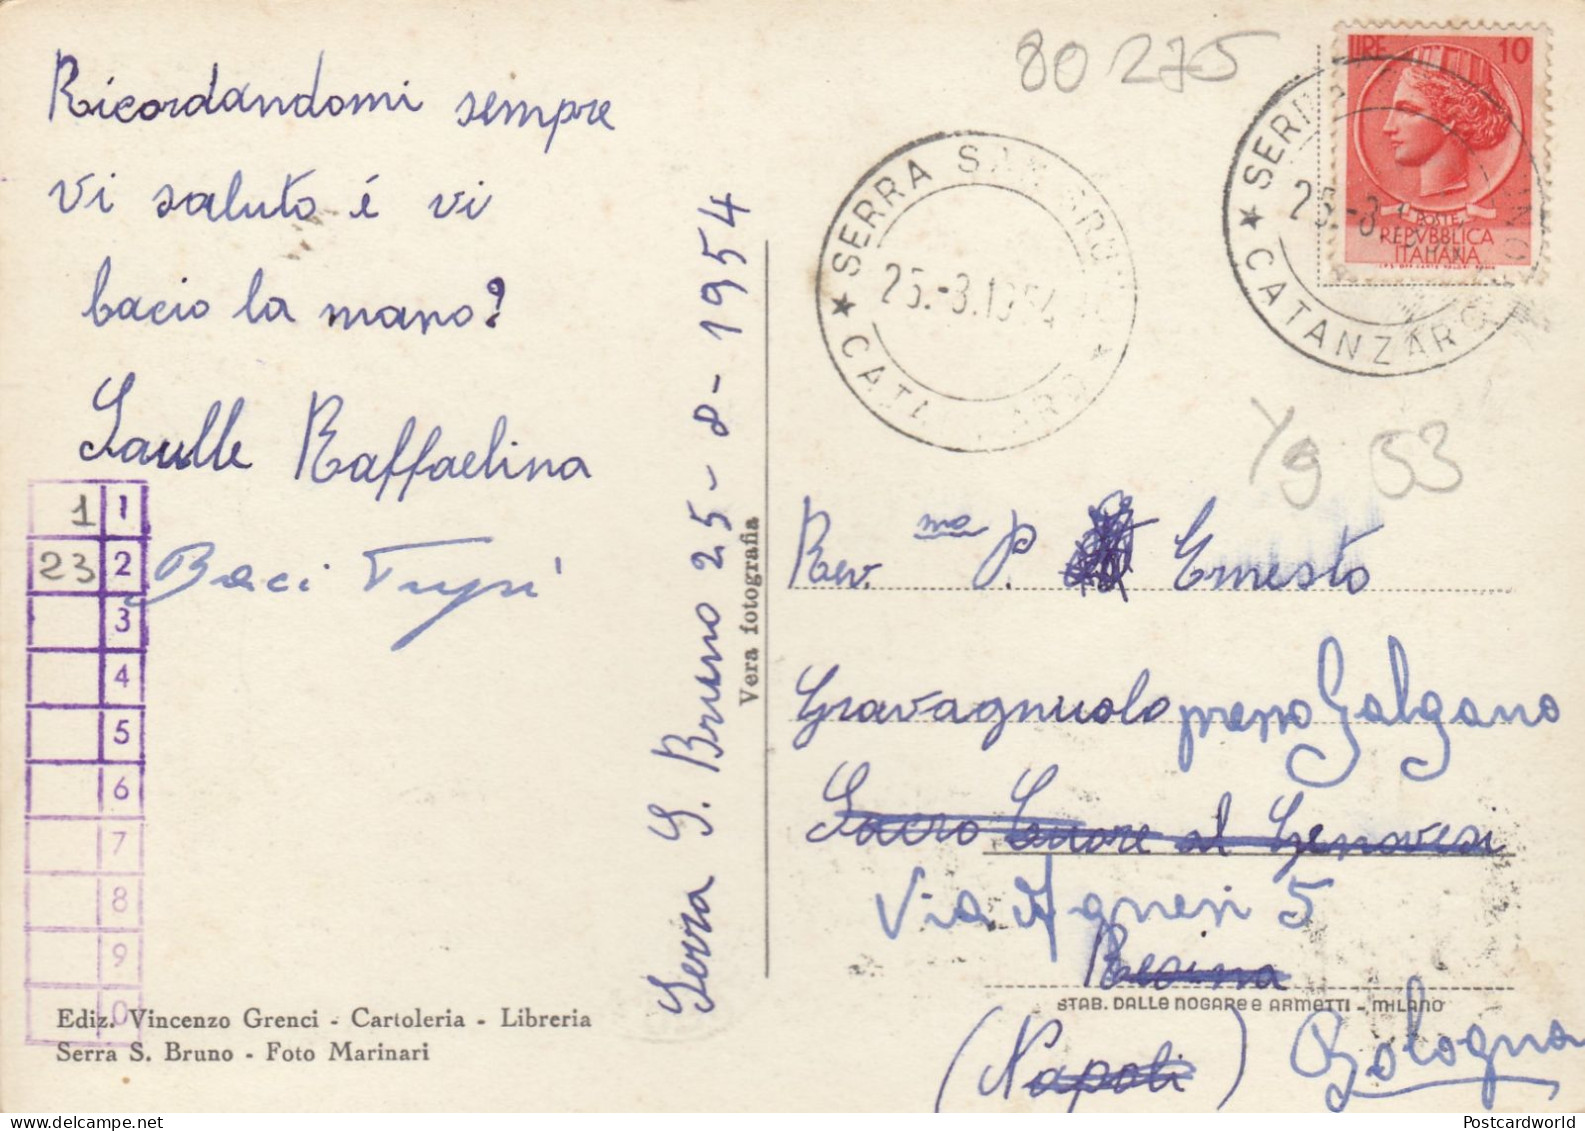 80 275
LIRE 10
POSTE
REPVBBLICA
ITALIANA
★ SERRA SAN BRUNO ★ CATANZARO
25.-8.1954
★ CATANZARO
Yg 53
Ricordandomi sempre
vi saluto é vi
bacio la mano?
Saulle Raffaelina
Baci
Serra S. Bruno 25-8-1954
Vera fotografia
Rev. ma P. Ernesto
Gravagnuolo presso Galgano
Sacro Cuore al Genovesi
Via Agnesi 5
Resina
STAB. DALLE NOGARE e ARMETTI - MILANO
(Napoli) Bologna
1 1
23 2
3
4
5
6
7
8
9
0
Ediz. Vincenzo Grenci - Cartoleria - Libreria
Serra S. Bruno - Foto Marinari
Postcardworld